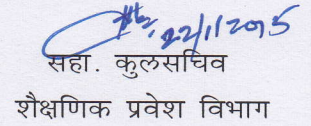 22/1/2015
सहा. कुलसचिव
शैक्षणिक प्रवेश विभाग